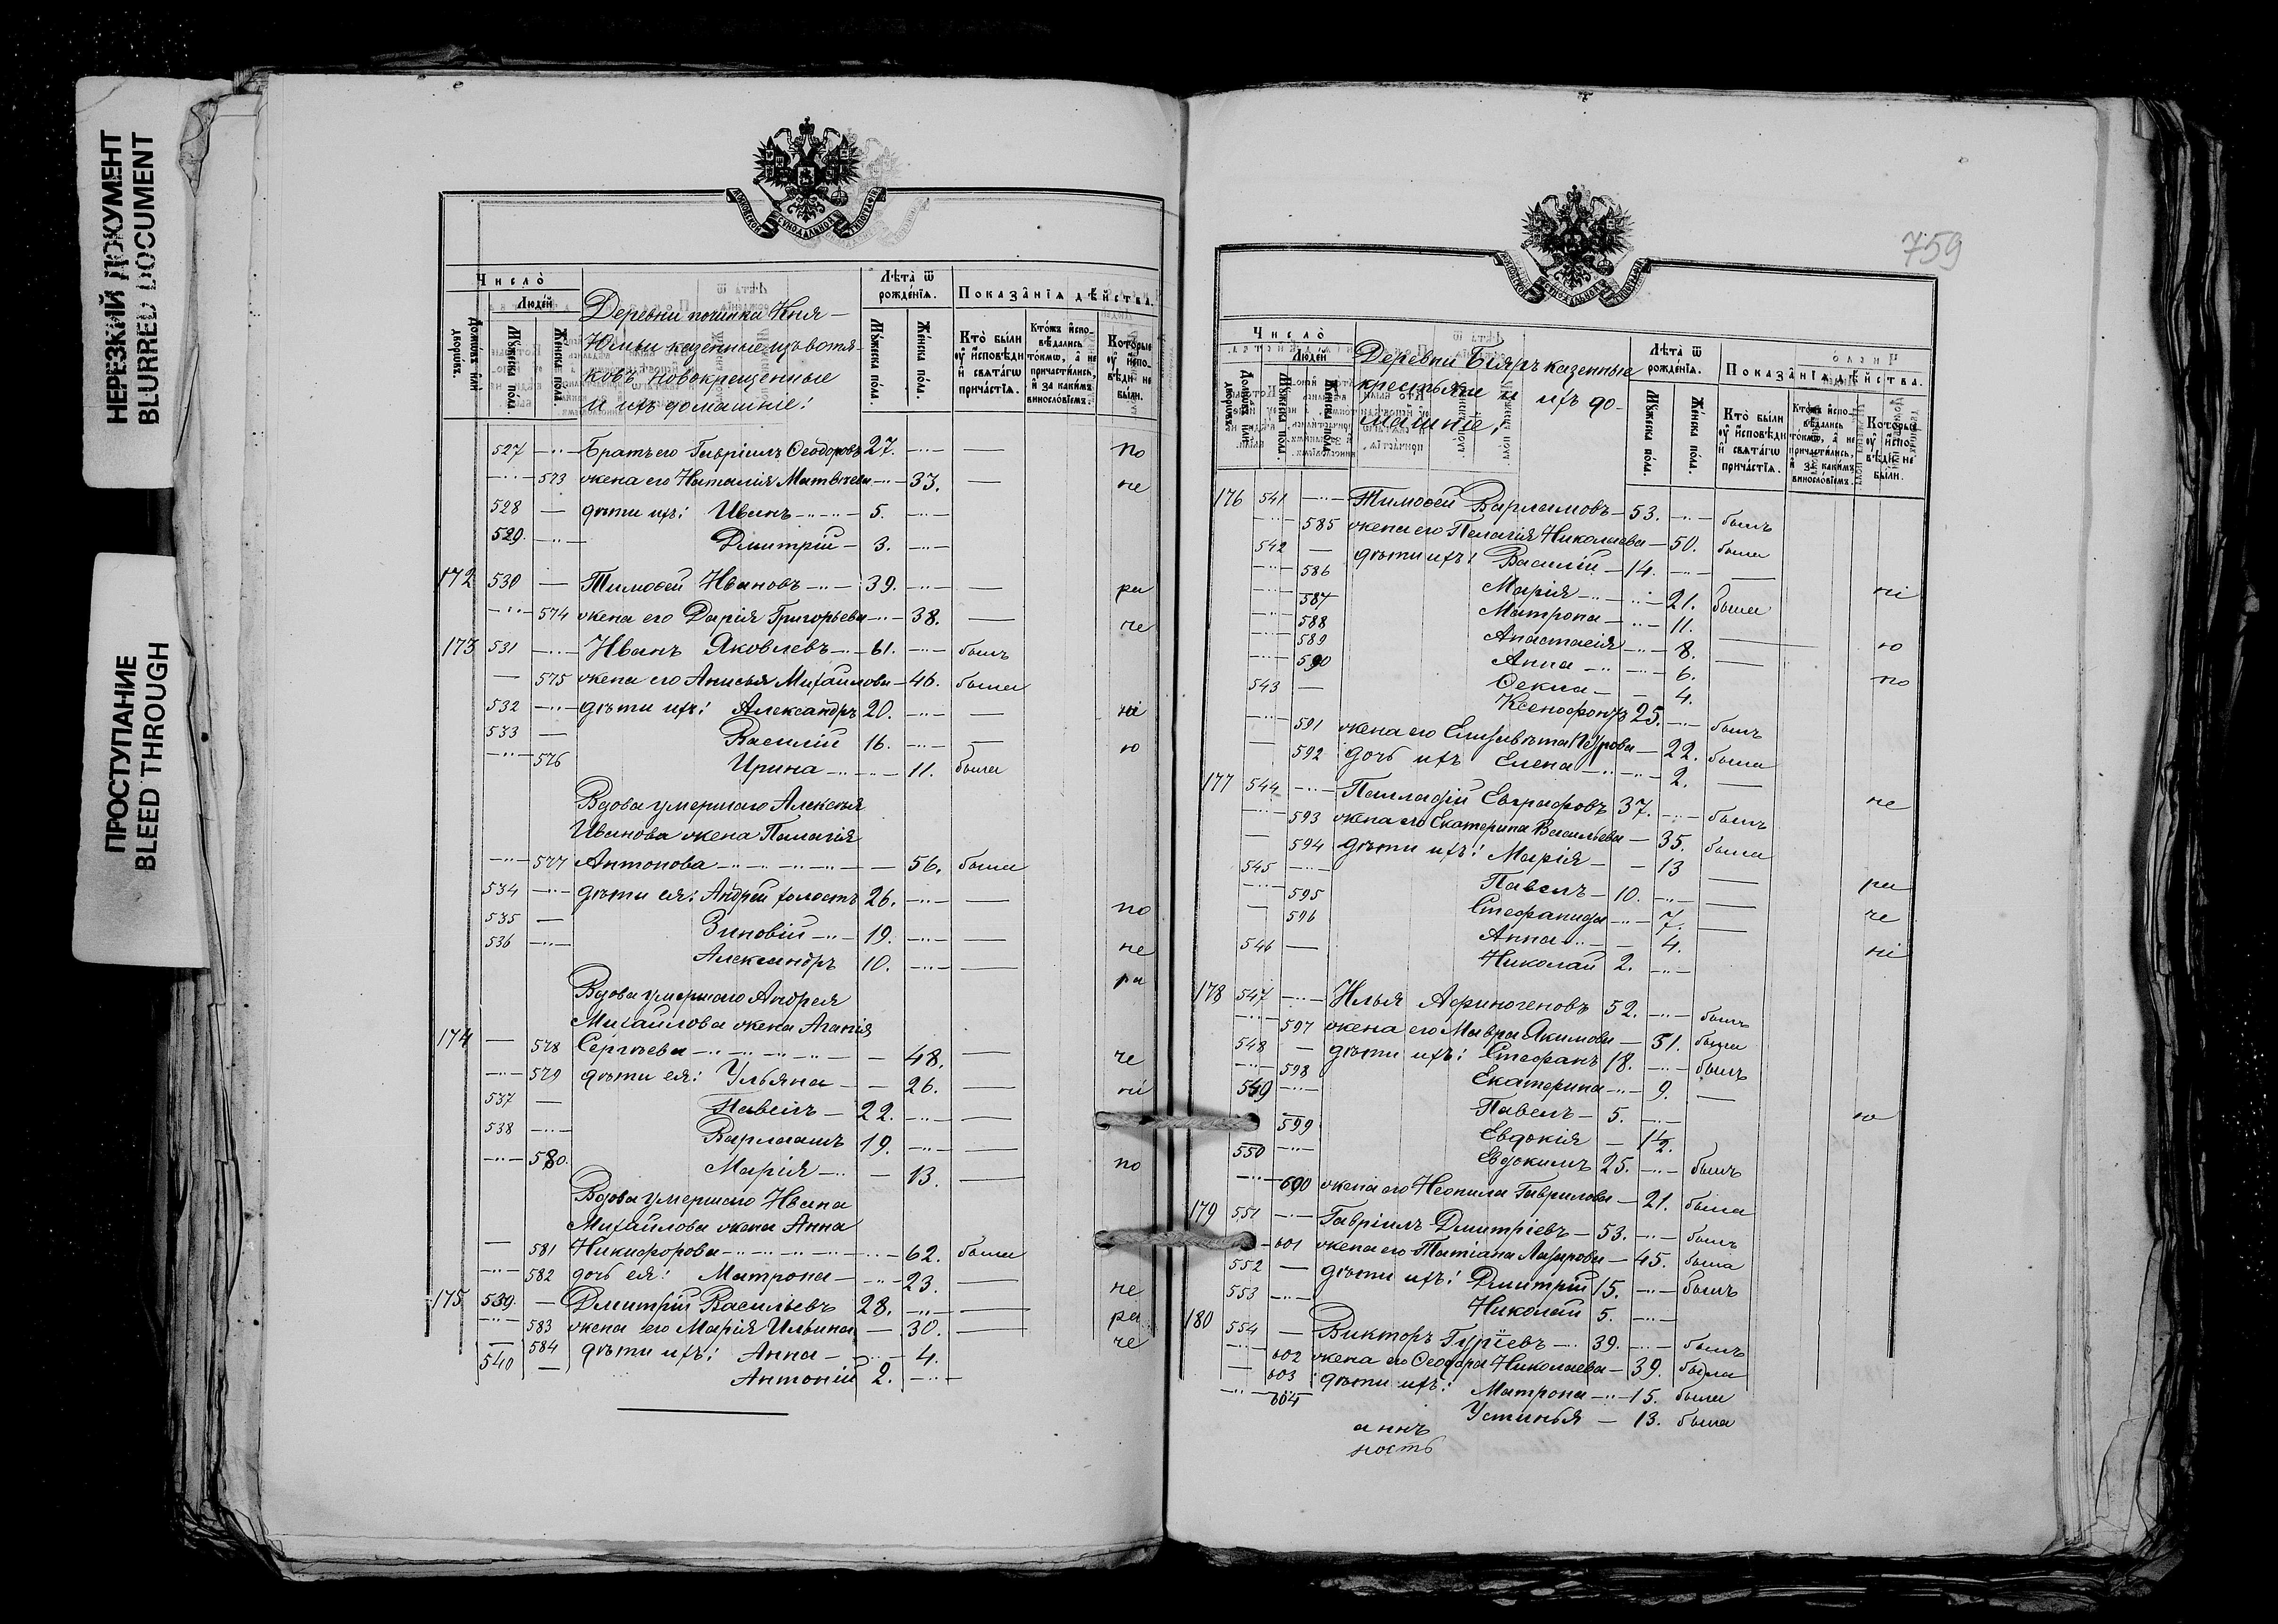 НЕРЕЗКИЙ ДОКУМЕНТ
BLURRED DOCUMENT
ПРОСТУПАНИЕ
BLEED THROUGH
МОСКОВСКОЙ СѴНОДАЛЬНОЙ ТИПОГРАФІИ
Число̀
Людéй
Домѡвъ илѝ дворѡвъ.
Мꙋжеска пóла.
Жéнска пóла.
Деревни починка Кня-
Юмьи казенные изъ вотя-
ковъ новокрещенные
и ихъ домашніе:
Лѣта̀ ѿ рождéнїѧ.
Мꙋжеска пóла.
Жéнска пóла.
Показáнїѧ дѣ́йства.
Ктò бы́ли ᲂу҆ и҆сповѣди и҆ свѧтáгѡ причáстїѧ.
Ктóжъ и҆сповѣдались тóкмѡ, а҆ не причасти́лись, и҆ за каки́мъ винослóвїемъ.
Котóрые ᲂу҆ и҆сповѣди не бы́ли.
527 Братъ его Гавріилъ Ѳеодоровъ 27. по
573 жена его Наталія Матвѣева 33. не
528 дѣти ихъ: Иванъ 5.
529. Дмитрій 3.
172 530 Тимоѳей Ивановъ 39. ра
574 жена его Дарія Григорьева 38. че
173 531 Иванъ Яковлевъ 61. былъ
575 жена его Анисья Михайлова 46. была
532 дѣти ихъ: Александръ 20. ні
533 Василій 16. ю
576 Ирина 11. была
Вдова умершаго Алексѣя
Иванова жена Палагія
577 Антонова 56. была
534 дѣти ея: Андрей холостъ 26. по
535 Зиновій 19. не
536 Александръ 10. ра
Вдова умершаго Андрея
Михайлова жена Агапія
174 578 Сергѣева 48. че
579 дѣти ея: Ульяна 26. ні
537 Павелъ 22.
538 Варлаамъ 19.
580. Марія 13. по
Вдова умершаго Ивана
Михайлова жена Анна
581 Никифорова 62. была
582 дочь ея: Матрона 23. не
175 539. Дмитрій Васильевъ 28. ра
583 жена его Марія Ильина 30. че
584 дѣти ихъ: Анна 4.
540 Антоній 2.
759
МОСКОВСКОЙ СѴНОДАЛЬНОЙ ТИПОГРАФІИ
Число̀
Людéй
Домѡвъ илѝ дворѡвъ.
Мꙋжеска пóла.
Жéнска пóла.
Деревни Біяръ казенные
крестьяне и ихъ до-
машніе:
Лѣта̀ ѿ рождéнїѧ.
Мꙋжеска пóла.
Жéнска пóла.
Показáнїѧ дѣ́йства.
Ктò бы́ли ᲂу҆ и҆сповѣди и҆ свѧтáгѡ причáстїѧ.
Ктóжъ и҆сповѣдались тóкмѡ, а҆ не причасти́лись, и҆ за каки́мъ винослóвїемъ.
Котóрые ᲂу҆ и҆сповѣди не бы́ли.
176 541 Тимоѳей Варламовъ 53. былъ
585 жена его Пелагія Николаева 50. была
542 дѣти ихъ: Василій 14. ні
586 Марія 21. была
587 Матрона 11.
588 Анастасія 8. ю
589 Анна 6.
590 Ѳекла 4. по
543 Ксенофонтъ 25. былъ
591 жена его Елизавета Петрова 22. была
592 дочь ихъ Елена 2. не
177 544 Палладій Евграфовъ 37. былъ
593 жена его Екатерина Васильева 35. была
594 дѣти ихъ: Марія 13 ра
545 Павелъ 10. че
595 Стефанида 7. ні
596 Анна 4.
546 Николай 2.
178 547 Илья Афиногеновъ 52. былъ
597 жена его Мавра Якимова 51. была
548 дѣти ихъ: Стефанъ 18. былъ
598 Екатерина 9. ю
549 Павелъ 5.
599 Евдокія 1/2.
550 Евдокимъ 25. былъ
600 жена его Неонила Гаврилова 21. была
179 551 Гавріилъ Дмитріевъ 53. былъ
601 жена его Татіана Лазарева 45. была
552 дѣти ихъ: Дмитрій 15. былъ
553 Николай 5.
180 554 Викторъ Гуріевъ 39. былъ
602 жена его Ѳеодора Николаева 39. была
603 дѣти ихъ: Матрона 15. была
604 Устинья 13. была
аннъ
ность